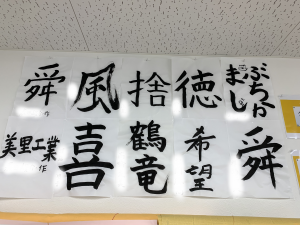 舜
作
風
捨
徳
ぶちか
まし
美里工業
作
喜
鶴竜
希望
舜